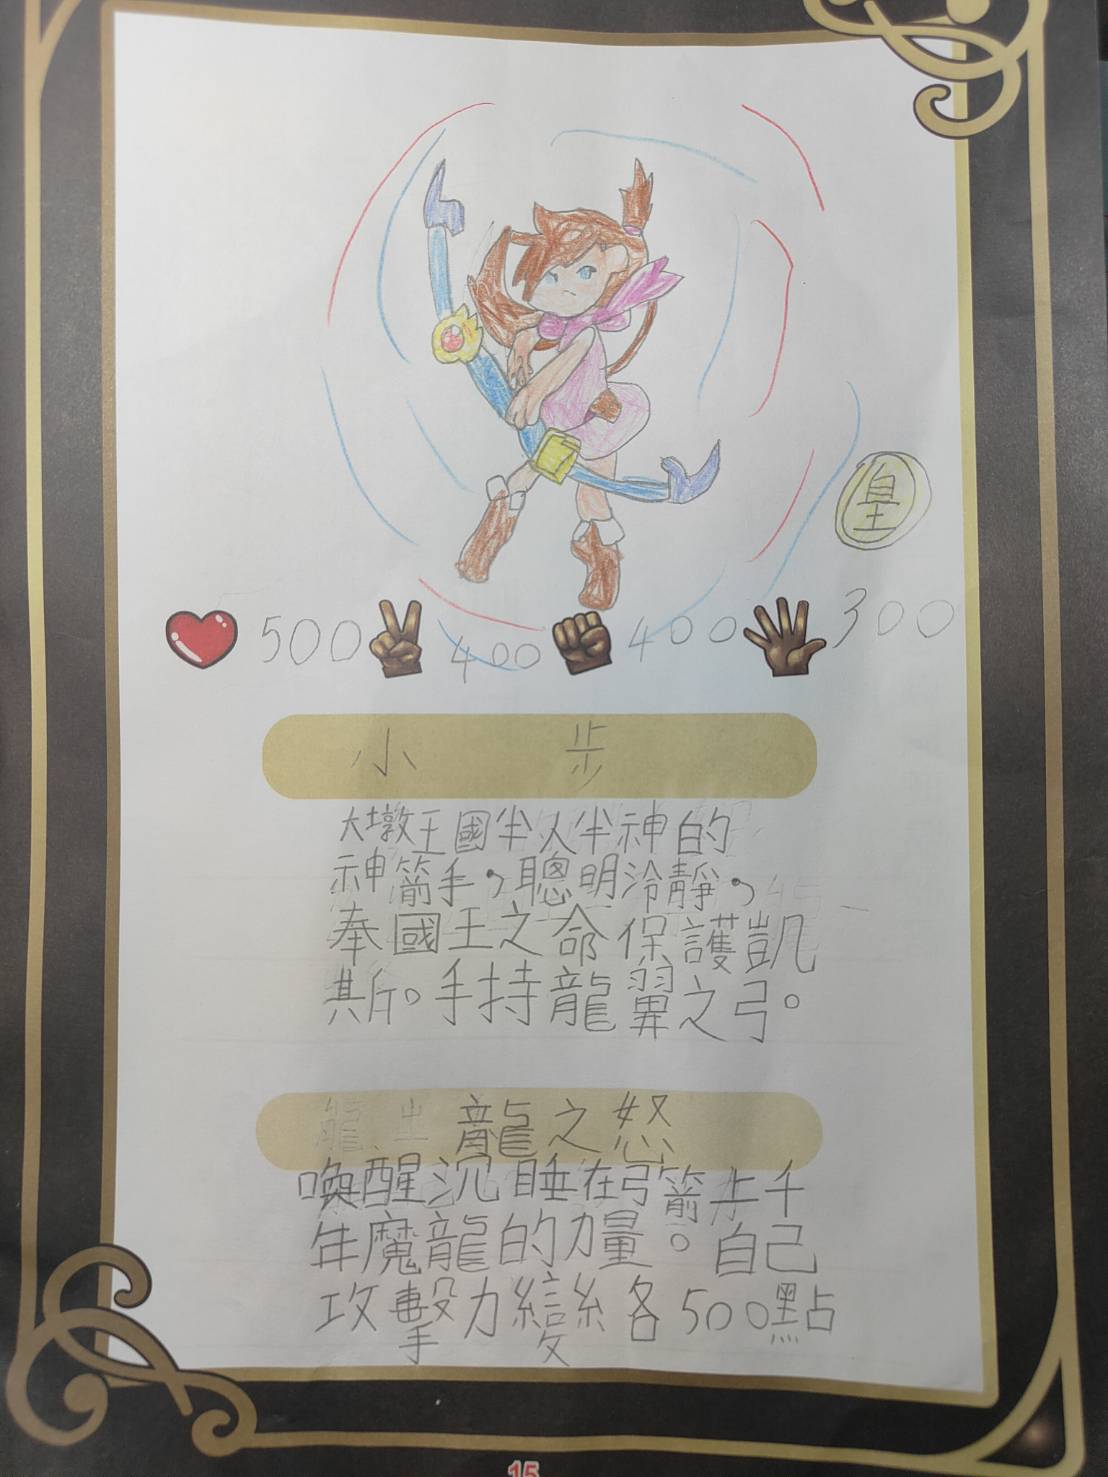 皇
500 400 400 300
小步
大墩王國半人半神的
神箭手，聰明冷靜，
奉國王之命保護凱
斯。手持龍翼之弓。
龍之怒
喚醒沉睡在弓箭上千
年魔龍的力量。自己
攻擊力變為各500點
15